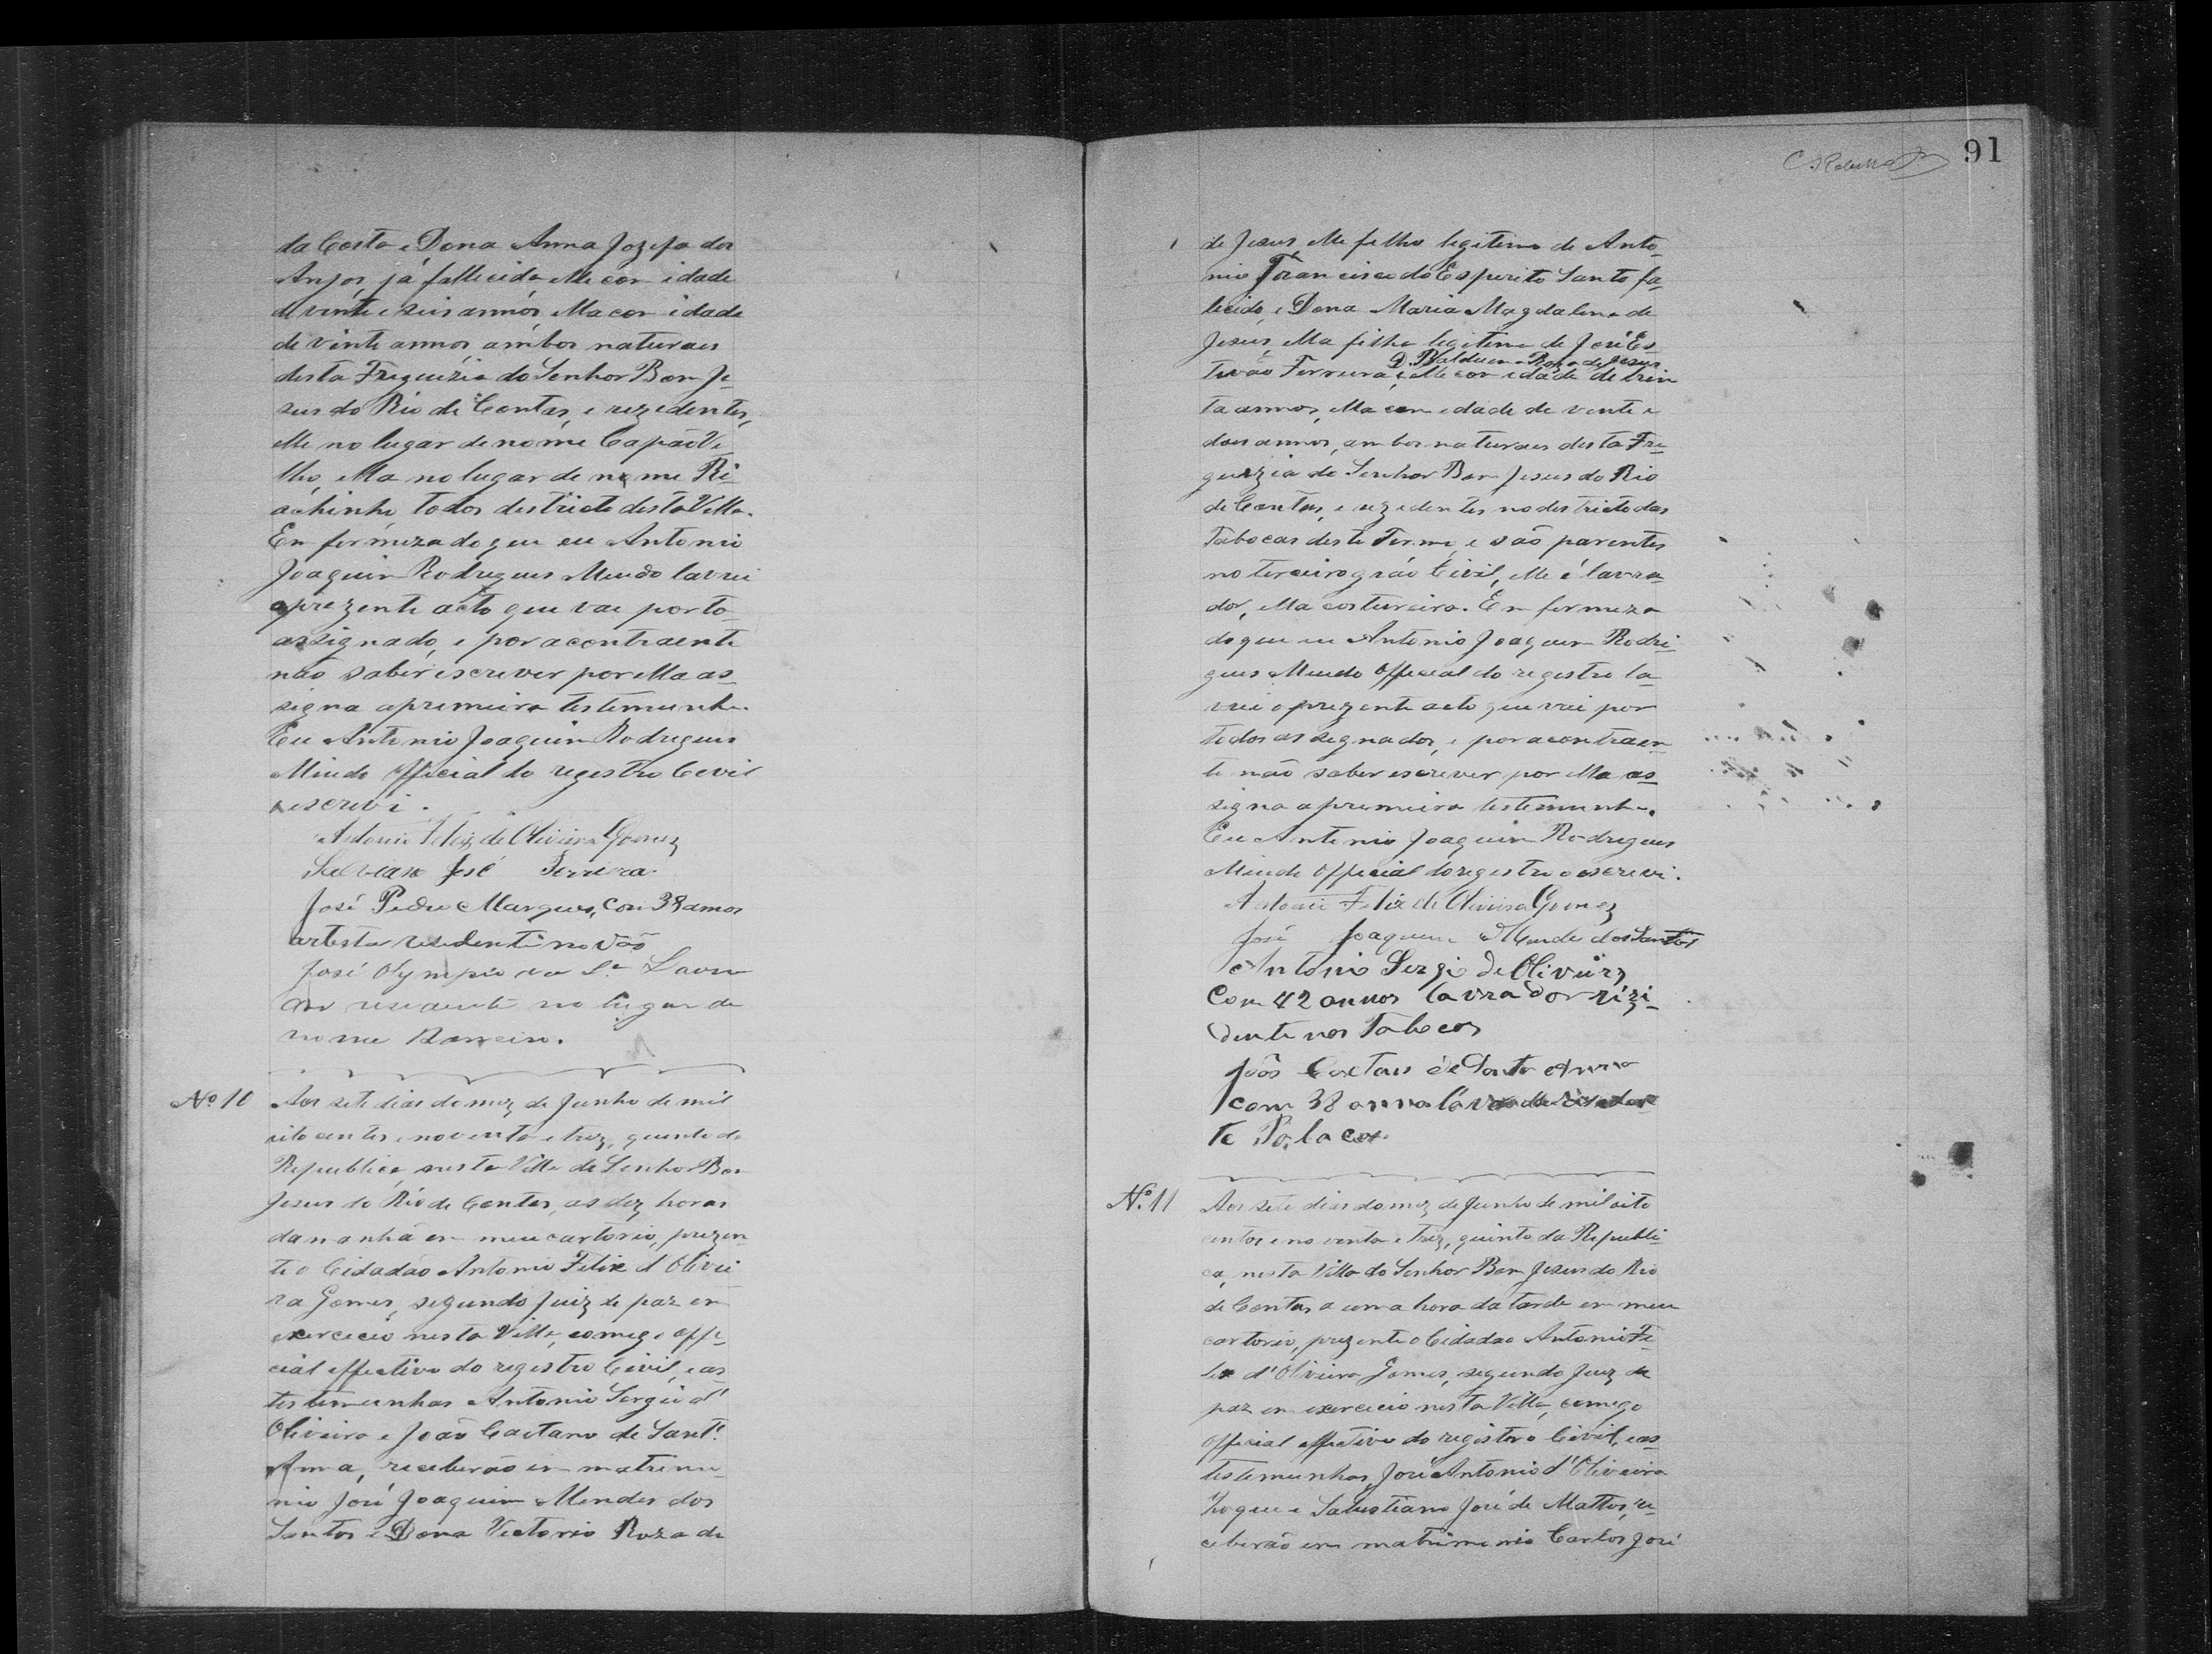 da Costa e Dona Anna Jozefa dos
Anjos, já fallecida, elle com idade
de vinte e seis annos, ella com idade
de vinte annos ambos naturaes
desta Freguizia do Senhor Bom Je-
sus do Rio de Contas, e rezedentes,
elle no lugar de nome Capão Ve-
lho, ella no lugar de nome Ri-
achinho todos destricto desta Villa.
Em firmeza do que eu Antonio
Joaquim Rodrigues Mendo lavrei
o prezente acto que vae por to
assignado, e por a contraente
não saber escrever por ella as-
signa a premeira testemunha.
Eu Antonio Joaquim Rodrigues
Mendo Official do registro Cevil
o escrevi.
Antonio Felix de Oliveira Gomes
Selviano José Ferreira
José Pedro Marques, com 38 annos
artista residente no Vão
José Olympio
residente no lugar de
nome Barreiro.
Nº 10
Aos sete dias do mez de Junho de mil
oito centos e noventa e trez, quinto da
Republica, nesta Villa do Senhor Bom
Jesus do Rio de Contas, as dez horas
da manhã em meu cartorio, prezen-
te o Cidadão Antonio Felix d'Olivei
ra Gomes, segundo Juiz de paz em
exercicio nesta Villa, comego offi-
cial effectivo do registro Civil, e as
testemunhas Antonio Sergio d'
Oliveira e João Caetano de Sant'
Anna, receberão em matrimo-
nio José Joaquim Mendes dos
Santos e Dona Victoria Roza de
91
de Jesus, elle filho legitimo de Anto-
nio Francisco do Esperito Santo fa-
lecido, e Dona Maria Magdalena de
Jesus, ella filha legitima de José Es-
D. Balduina Roza de Jesus
tevão Ferreira e, elle com edade de trin
ta annos, ella com edade de vente e
dous annos, ambos naturaes desta Fre-
guezia do Senhor Bom Jesus do Rio
de Contas, e rezedentes no destricto das
Tabocas deste Termo, e são parentes
no terceiro gráo Civil, elle é lavra-
dor, ella costureira. Em fermeza
do que eu Antonio Joaquim Rodri-
gues Mendo Official do registro la-
vrei o prezente acto que vai por
todos assegnados, e por a contraen-
te não saber escrever por ella as-
signa a premeira testemunha.
Eu Antonio Joaquim Rodrigues
Mendo Official do registro o escrevi.
Antonio Felix de Oliveira Gomes
José Joaquim Mendes dos Santos
Antonio Sergio de Oliveira
Com 42 annos lavrador rizi-
dente nas Tabocas
João Caetano de Santa Anna
com 38 anno
Nº 11
Aos sete dias do mez de Junho de mil oito
centos e noventa e trez, quinto da Republi-
ca, nesta Villa do Senhor Bom Jesus do Rio
de Contas a uma hora da tarde em meu
cartorio, prezente o Cidadão Antonio Fe-
lix d'Oliveira Gomes, segundo Juiz de
paz em exercicio nesta Villa, comego
Official effectivo do registro Civil, e as-
testemunhas, José Antonio d'Oliveira
Roque e Salustiano José de Mattos, re-
ceberão em matrimonio Carlos José